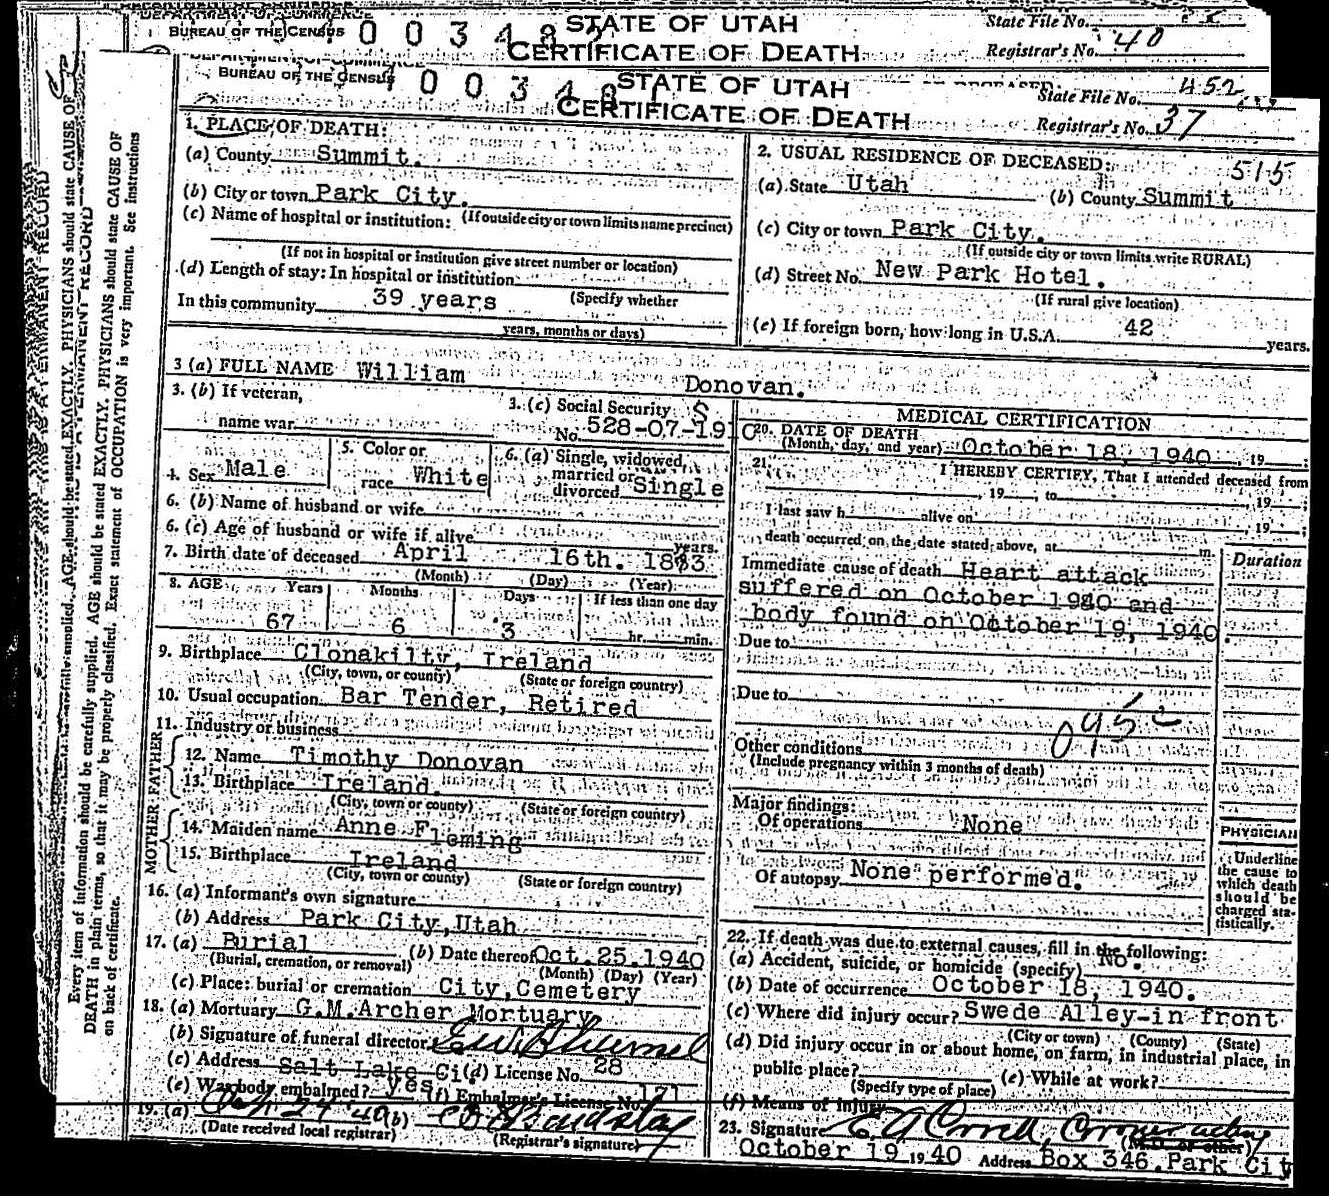 BUREAU OF THE CENSUS
0 0 3 4 8
STATE OF UTAH
CERTIFICATE OF DEATH
State File No.
Registrar's No. 40
BUREAU OF THE CENSUS
0 0 3 4 8
STATE OF UTAH
CERTIFICATE OF DEATH
State File No. 452
Registrar's No. 37
515
Every item of information should be carefully supplied. AGE should be stated EXACTLY. PHYSICIANS should state CAUSE OF
DEATH in plain terms, so that it may be properly classified. Exact statement of OCCUPATION is very important. See instructions
on back of certificate.
1. PLACE OF DEATH:
(a) County Summit.
(b) City or town Park City.
(c) Name of hospital or institution: (If outside city or town limits name precinct)
(If not in hospital or institution give street number or location)
(d) Length of stay: In hospital or institution
In this community 39 years (Specify whether
years, months or days)
2. USUAL RESIDENCE OF DECEASED:
(a) State Utah (b) County Summit
(c) City or town Park City.
(If outside city or town limits write RURAL)
(d) Street No. New Park Hotel.
(If rural give location)
(e) If foreign born, how long in U.S.A. 42 years.
3 (a) FULL NAME William Donovan.
3. (b) If veteran,
name war
3. (c) Social Security
No. 528-07-1910
4. Sex Male
5. Color or
race White
6. (a) Single, widowed,
married or
divorced Single
6. (b) Name of husband or wife
6. (c) Age of husband or wife if alive years.
7. Birth date of deceased April 16th. 1873
(Month) (Day) (Year)
8. AGE Years Months Days If less than one day
67 6 3 hr. min.
9. Birthplace Clonakilty, Ireland
(City, town, or county) (State or foreign country)
10. Usual occupation Bar Tender, Retired
11. Industry or business
FATHER
12. Name Timothy Donovan
13. Birthplace Ireland.
(City, town or county) (State or foreign country)
MOTHER
14. Maiden name Anne Fleming
15. Birthplace Ireland
(City, town or county) (State or foreign country)
16. (a) Informant's own signature
(b) Address Park City, Utah
17. (a) Burial (b) Date thereof Oct. 25. 1940
(Burial, cremation, or removal) (Month) (Day) (Year)
(c) Place: burial or cremation City, Cemetery
18. (a) Mortuary G.M.Archer Mortuary
(b) Signature of funeral director
(c) Address Salt Lake Ci (d) License No. 28
(e) Was body embalmed? yes (f) Embalmer's License No. 171
19. (a) (b)
(Date received local registrar) (Registrar's signature)
MEDICAL CERTIFICATION
20. DATE OF DEATH
(Month, day, and year) October 18, 1940 , 19 ;
21. I HEREBY CERTIFY, That I attended deceased from
, 19 , to , 19 ;
I last saw h alive on , 19 ;
death occurred on the date stated above, at m.
Duration
Immediate cause of death Heart attack
suffered on October 1940 and
body found on October 19, 1940.
Due to
Due to
Other conditions
(Include pregnancy within 3 months of death)
Major findings:
Of operations None
Of autopsy None performed.
PHYSICIAN
Underline
the cause to
which death
should be
charged sta-
tistically.
22. If death was due to external causes, fill in the following:
(a) Accident, suicide, or homicide (specify) No.
(b) Date of occurrence October 18, 1940.
(c) Where did injury occur? Swede Alley-in front
(City or town) (County) (State)
(d) Did injury occur in or about home, on farm, in industrial place, in
public place? (e) While at work?
(Specify type of place)
(f) Means of Injury
23. Signature
October 19 19 40 Address Box 346. Park City